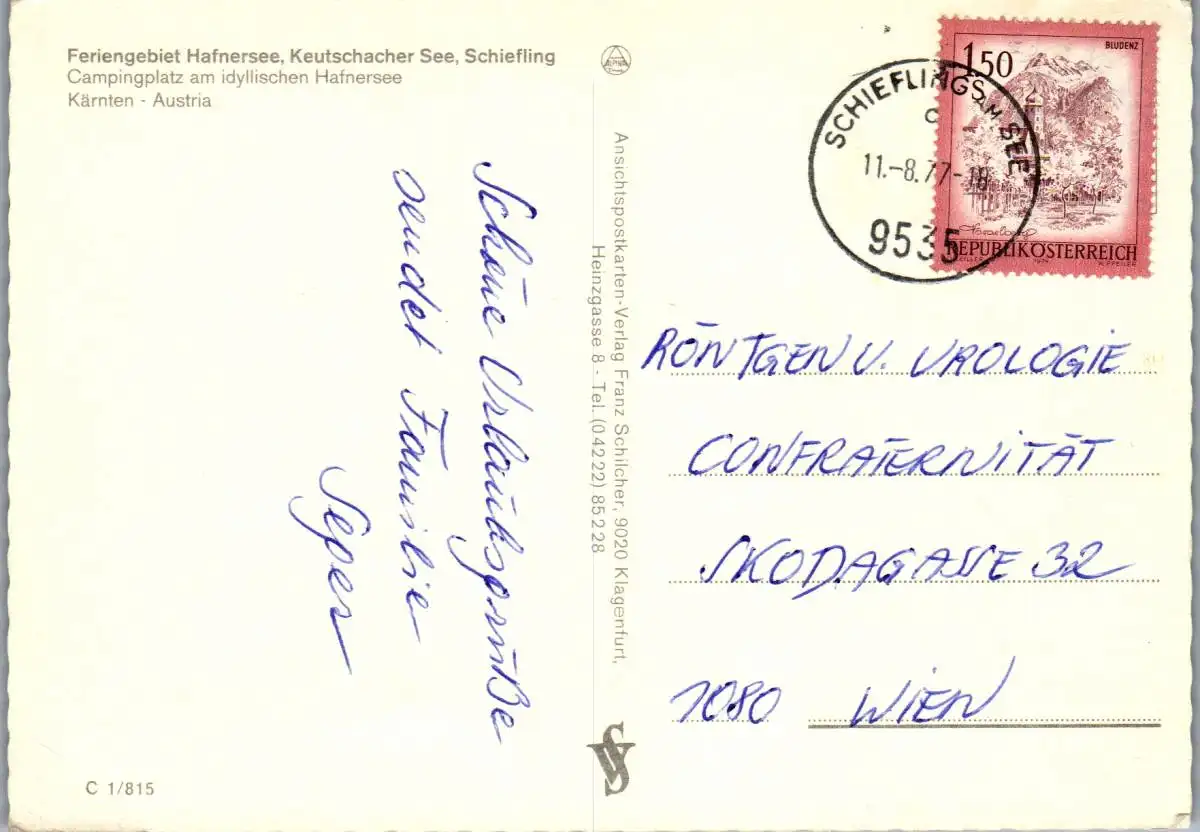 Feriengebiet Hafnersee, Keutschacher See, Schiefling
Campingplatz am idyllischen Hafnersee
Kärnten - Austria
Schöne Urlaubsgrüße
sendet Familie
C 1/815
Ansichtspostkarten-Verlag Franz Schilcher, 9020 Klagenfurt,
Heinzgasse 8 - Tel. (04222) 85228
SCHIEFLING AM SEE
11.-8.77-18
9535
1.50
S
BLUDENZ
REPUBLIK ÖSTERREICH
RÖNTGEN U. UROLOGIE
CONFRATERNITÄT
SKODAGASSE 32
1080 WIEN